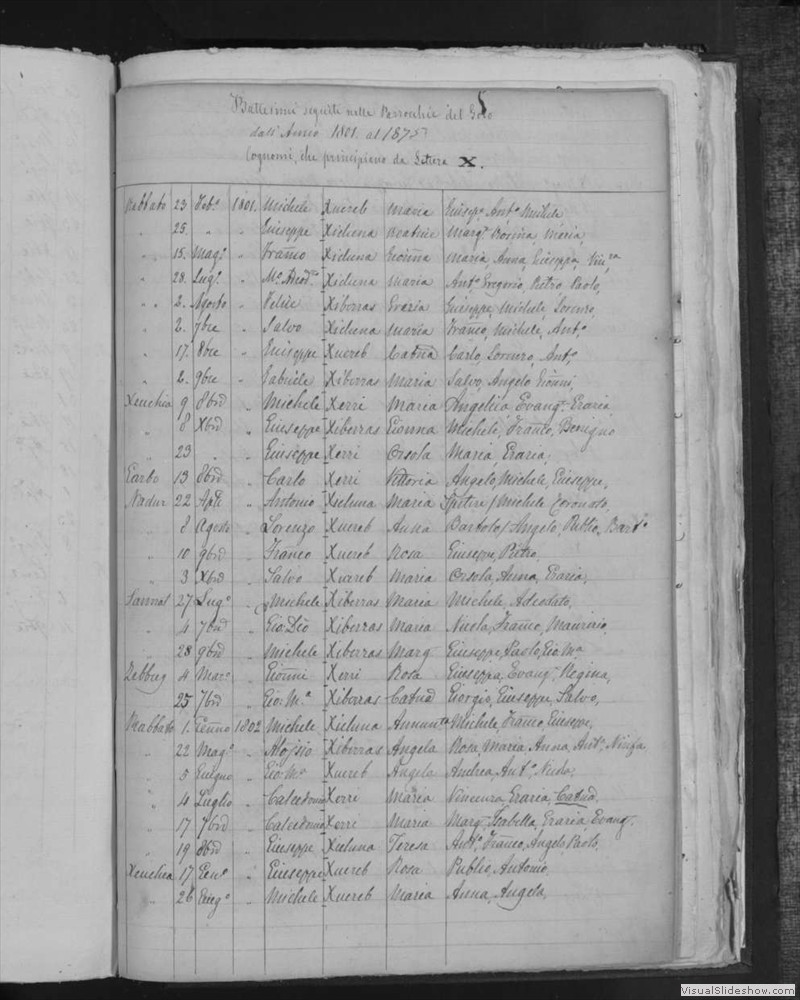 5
Battesimi seguiti nelle Parrochie del Gozo
dall'Anno 1801 al 1875
Cognomi, che principiano da Lettera X.
Rabbato 23 Feb.º 1801. Michele Xuereb Maria Giusep. Ant.º Michele
" 25. " " Giuseppe Xicluna Beatrice Marg.ª Rosina Maria,
" 15. Mag.º " Franco Xicluna Gionna Maria Anna, Giuseppa,
" 28. Lug.º " Xicluna Maria Ant.º Gregorio, Pietro Paolo,
" " 2. Agosto " Felice Xiberras Grazia Giuseppe, Michele, Lorenzo,
" 2. 7bre " Salvo Xicluna Maria Franco, Michele, Ant.º
" 17. 8bre " Giuseppe Xuereb Catna Carlo, Lorenzo, Ant.º
" 2. 9bre " Gabriele Xiberras Maria Salvo, Angelo Gionni,
Xeuchia 9 8bre " Michele Xerri Maria Angelica Evang. Grazia
" 8 Xbre " Giuseppe Xiberras Gionna Michele, Franco, Benigno
" 23 " " Giuseppe Xerri Orsola Maria Grazia,
Garbo 13 8bre " Carlo Xerri Vittoria Angelo, Michele, Giuseppe,
Nadur 22 Aple " Antonio Xicluna Maria Michele Coronato,
" 8 Agosto " Lorenzo Xuereb Anna Bartolo/Angelo, Publio, Bart.º
" 10 9bre " Franco Xuereb Rosa Giuseppe, Pietro,
" 3 Xbre " Salvo Xuereb Maria Orsola, Anna, Grazia,
Sannat 27 Lug.º " Michele Xiberras Maria Michele, Adeodato,
" 4 7bre " Gio: Dio Xiberras Maria Nicola, Franco, Maurizio,
" 28 9bre " Michele Xiberras Marg.ª Giuseppe, Paolo, Gio Mª
Zebbug 4 Marº " Gionni Xerri Rosa Giuseppa, Evang.ª Regina,
" 25 7bre " Gio: M.ª Xiberras Catna Giorgio, Giuseppe, Salvo,
Rabbato 1. Genno 1802 Michele Xicluna Annunta Michele, Franco, Giuseppe,
" 22 Mag.º " Aloysio Xiberras Angela Rosa, Maria, Anna, Ant.ª Ninfa
" 5 Giugno " Gio: Mª Xuereb Angela Andrea, Ant.º Nicola,
" 4 Luglio " Calcedonio Xerri Maria Vincenza, Grazia, Catna.
" 17 7bre " Calcedonio Xerri Maria Marg.ª Isabella, Grazia, Evang.
" 19 8bre " Giuseppe Xicluna Teresa Ant.º Franco, Angelo Paolo,
Xeuchia 17 Gen.º " Giuseppe Xuereb Rosa Publio, Antonio,
" 26 Giug.º " Michele Xuereb Maria Anna, Angela,
VisualSlideshow.com